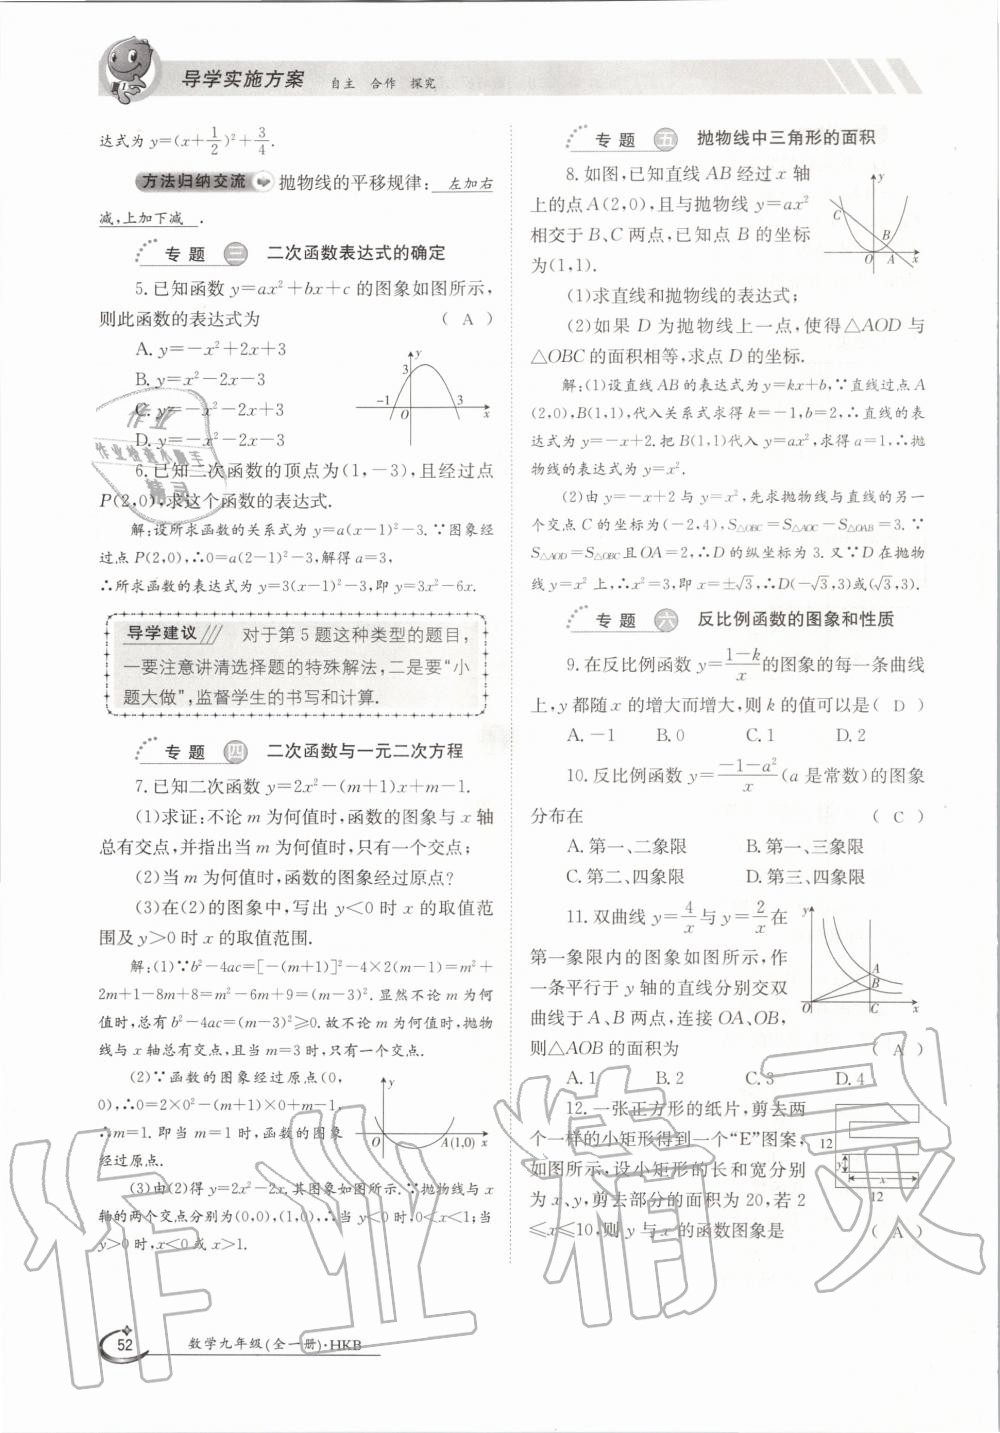 导学实施方案 自主 合作 探究
达式为 y=(x+1/2)²+3/4.
方法归纳交流 抛物线的平移规律: 左加右
减,上加下减 .
专题 三 二次函数表达式的确定
5.已知函数 y=ax²+bx+c 的图象如图所示,
则此函数的表达式为 ( A )
A. y=-x²+2x+3
B. y=x²-2x-3
C. y=-x²-2x+3
D. y=-x²-2x-3
y
3
-1 O 3 x
6.已知二次函数的顶点为(1,-3),且经过点
P(2,0),求这个函数的表达式.
解:设所求函数的关系式为 y=a(x-1)²-3.∵图象经
过点 P(2,0),∴0=a(2-1)²-3,解得 a=3,
∴所求函数的表达式为 y=3(x-1)²-3,即 y=3x²-6x.
导学建议 对于第 5 题这种类型的题目,
一要注意讲清选择题的特殊解法,二是要“小
题大做”,监督学生的书写和计算.
专题 四 二次函数与一元二次方程
7.已知二次函数 y=2x²-(m+1)x+m-1.
(1)求证:不论 m 为何值时,函数的图象与 x 轴
总有交点,并指出当 m 为何值时,只有一个交点;
(2)当 m 为何值时,函数的图象经过原点?
(3)在(2)的图象中,写出 y<0 时 x 的取值范
围及 y>0 时 x 的取值范围.
解:(1)∵b²-4ac=[-(m+1)]²-4×2(m-1)=m²+
2m+1-8m+8=m²-6m+9=(m-3)².显然不论 m 为何
值时,总有 b²-4ac=(m-3)²≥0.故不论 m 为何值时,抛物
线与 x 轴总有交点,且当 m=3 时,只有一个交点.
(2)∵函数的图象经过原点(0,
0),∴0=2×0²-(m+1)×0+m-1,
∴m=1.即当 m=1 时,函数的图象
经过原点.
y
O A(1,0) x
(3)由(2)得 y=2x²-2x.其图象如图所示.∵抛物线与 x
轴的两个交点分别为(0,0),(1,0),∴当 y<0 时,0<x<1;当
y>0 时,x<0 或 x>1.
专题 五 抛物线中三角形的面积
8.如图,已知直线 AB 经过 x 轴
上的点 A(2,0),且与抛物线 y=ax²
相交于 B、C 两点,已知点 B 的坐标
为(1,1).
y
C
B
O A x
(1)求直线和抛物线的表达式;
(2)如果 D 为抛物线上一点,使得△AOD 与
△OBC 的面积相等,求点 D 的坐标.
解:(1)设直线 AB 的表达式为 y=kx+b,∵直线过点 A
(2,0),B(1,1),代入关系式求得 k=-1,b=2,∴直线的表
达式为 y=-x+2.把 B(1,1)代入 y=ax²,求得 a=1,∴抛
物线的表达式为 y=x².
(2)由 y=-x+2 与 y=x²,先求抛物线与直线的另一
个交点 C 的坐标为(-2,4),S△OBC=S△AOC-S△OAB=3.∵
S△AOD=S△OBC且 OA=2,∴D 的纵坐标为 3.又∵D 在抛物
线 y=x² 上,∴x²=3,即 x=±√3,∴D(-√3,3)或(√3,3).
专题 六 反比例函数的图象和性质
9.在反比例函数 y=(1-k)/x 的图象的每一条曲线
上,y 都随 x 的增大而增大,则 k 的值可以是( D )
A.-1 B.0 C.1 D.2
10.反比例函数 y=(-1-a²)/x (a 是常数)的图象
分布在 ( C )
A.第一、二象限 B.第一、三象限
C.第二、四象限 D.第三、四象限
11.双曲线 y=4/x 与 y=2/x 在
第一象限内的图象如图所示,作
一条平行于 y 轴的直线分别交双
曲线于 A、B 两点,连接 OA、OB,
则△AOB 的面积为 ( A )
y
A
B
O C x
A.1 B.2 C.3 D.4
12.一张正方形的纸片,剪去两
个一样的小矩形得到一个“E”图案,
如图所示,设小矩形的长和宽分别
为 x、y,剪去部分的面积为 20,若 2
≤x≤10,则 y 与 x 的函数图象是 ( A )
12
y
x
12
52 数学九年级(全一册)·HKB
作业
作业检查小帮手
精灵
作业精灵